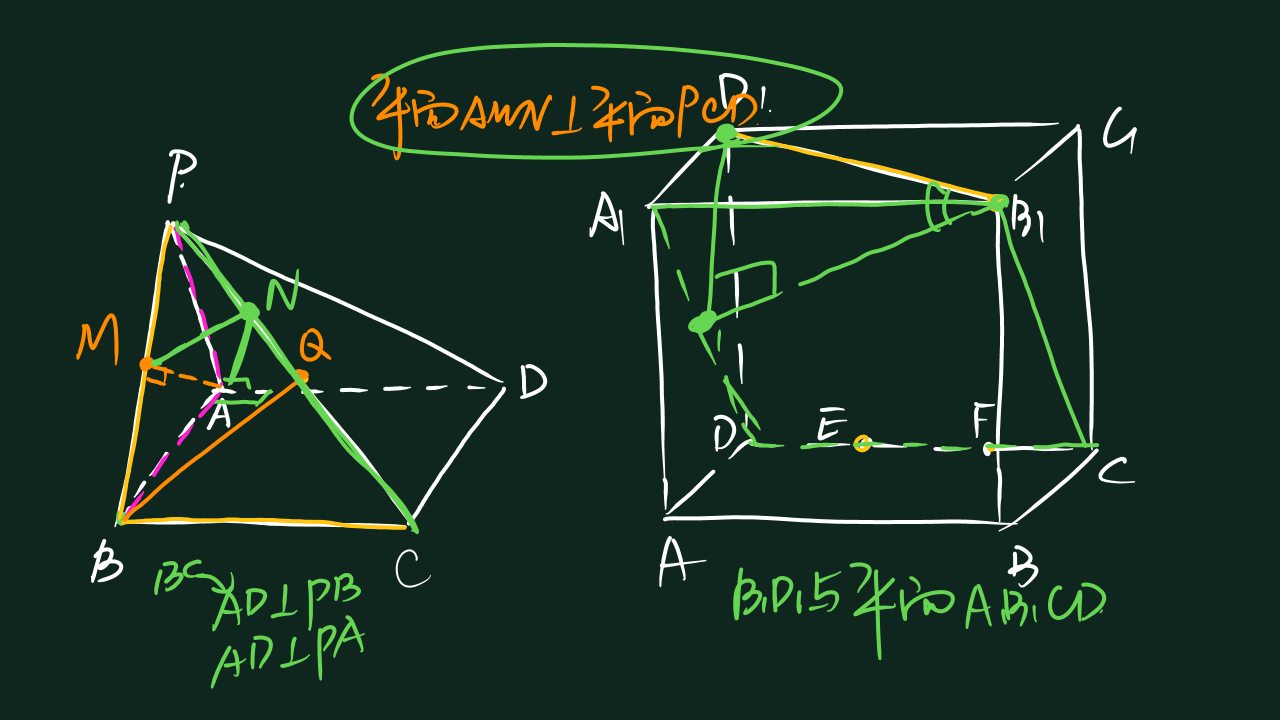 平面AMN⊥平面PCD
P
M
N
Q
A
D
B
C
BC
AD⊥PB
AD⊥PA
D₁
C₁
A₁
B₁
D
E
F
C
A
B
B₁D₁与平面A₁B₁CD